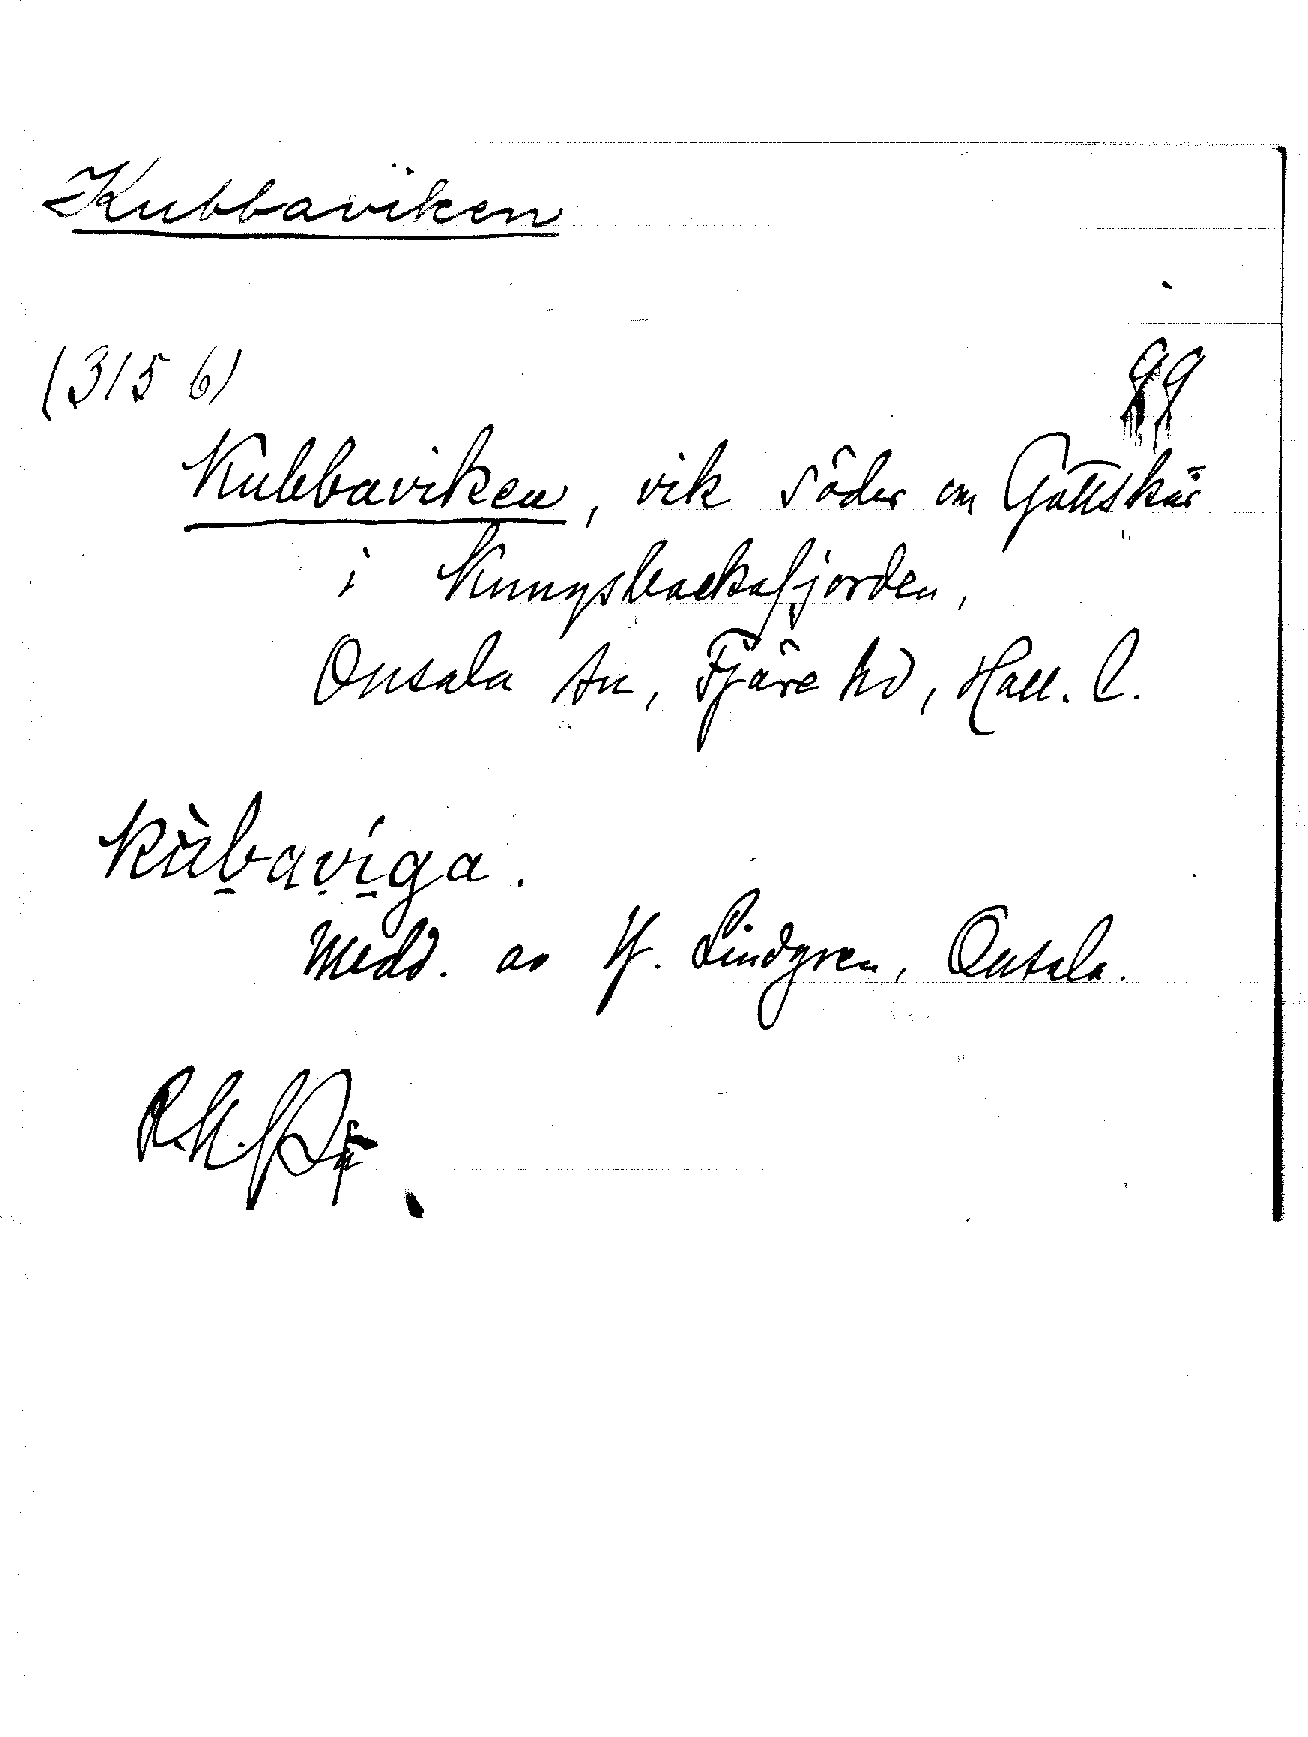 Kubbaviken
(315 6)
99
Kubbaviken, vik söder om Gottskär
i Kungsbackafjorden,
Onsala sn, Fjäre hd, Hall. l.
kùbavíga.
Medd. av Hj. Lindgren, Onsala.